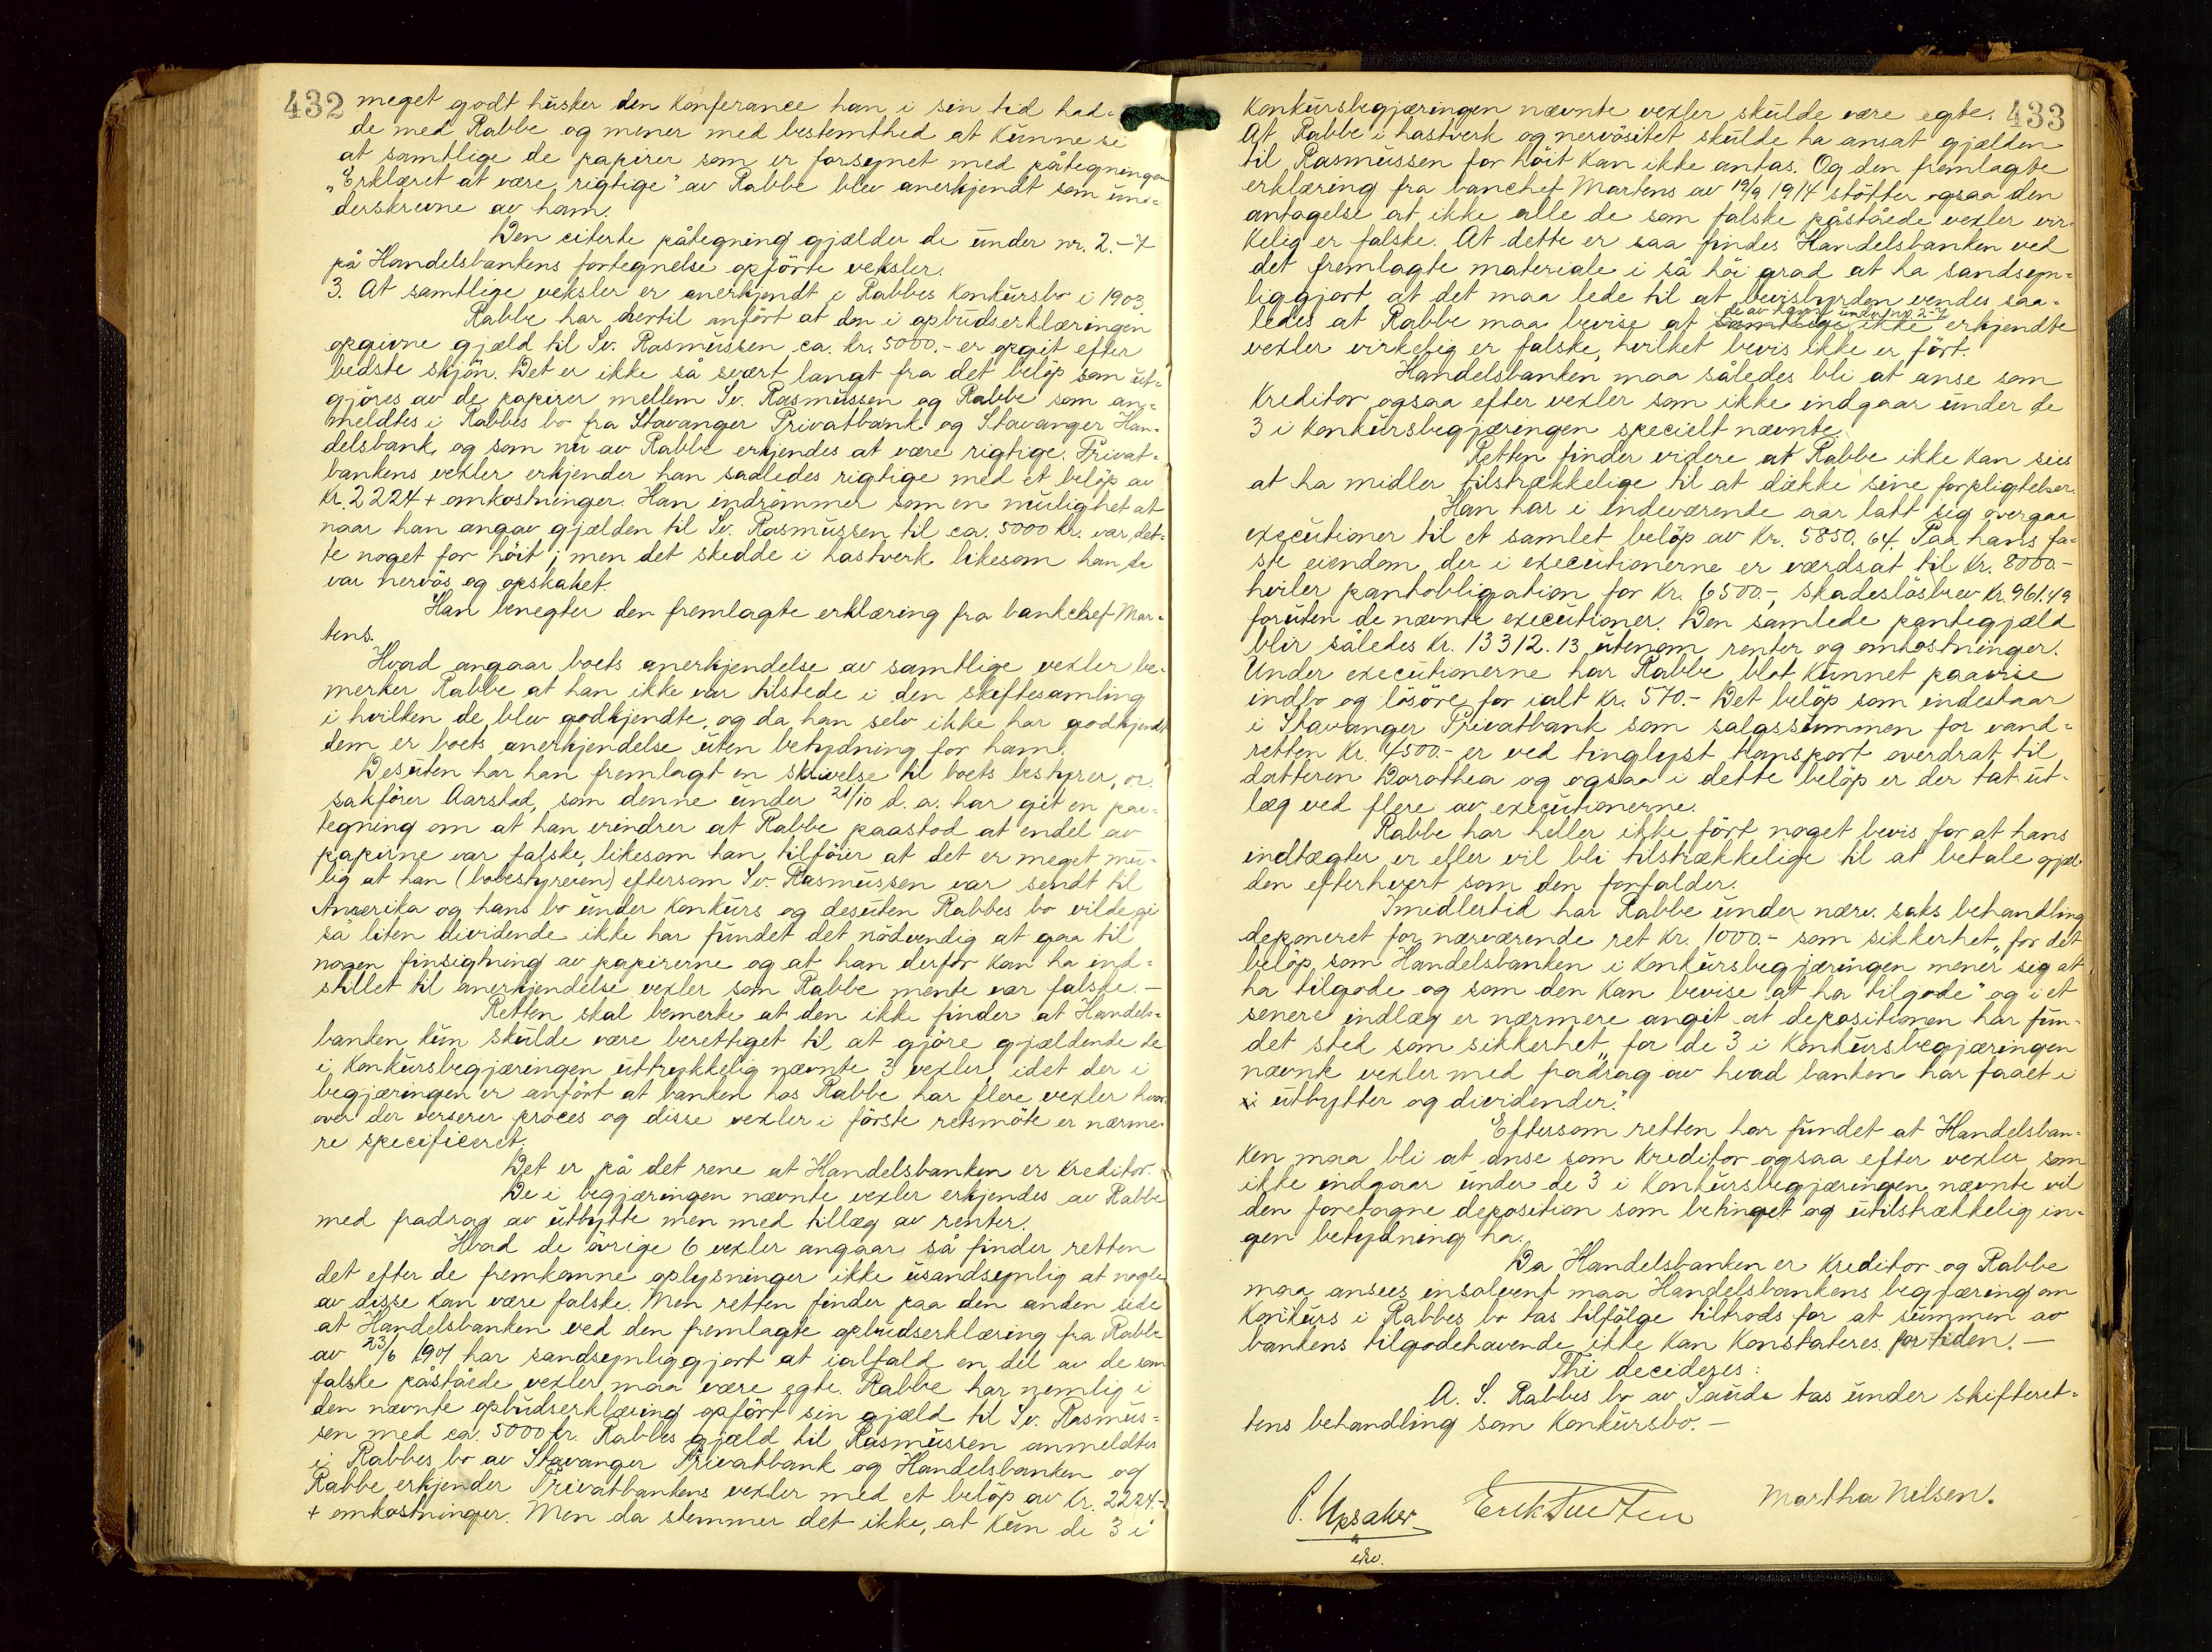 432
meget godt husker den konferance han i sin tid had-
de med Rabbe og mener med bestemthed at kunne si
at samtlige de papirer som er forsynet med påtegningen
"Erklæret at være rigtige" av Rabbe blev anerkjendt som un-
derskrevne av ham.
Den citerte påtegning gjælder de under nr. 2-7
på Handelsbankens fortegnelse opførte veksler.
3. At samtlige veksler er anerkjendt i Rabbes konkursbo i 1903.
Rabbe har hertil anført at den i opbudserklæringen
opgivne gjæld til Sv. Rasmussen ca. kr. 5000.- er opgit efter
bedste skjøn. Det er ikke så svært langt fra det beløp som ut-
gjøres av de papirer mellem Sv. Rasmussen og Rabbe som an-
meldtes i Rabbes bo fra Stavanger Privatbank og Stavanger Han-
delsbank, og som nu av Rabbe erkjendes at være rigtige. Privat-
bankens vexler erkjender han saaledes rigtige med et beløp av
kr. 2224 + omkostninger. Han indrømmer som en mulighet at
naar han angav gjælden til Sv. Rasmussen til ca. 5000 kr. var det-
te noget for høit; men det skedde i hastverk likesom han da
var nervøs og opskaket.
Han benegter den fremlagte erklæring fra bankchef Mar-
tens.
Hvad angaar boets anerkjendelse av samtlige vexler be-
merker Rabbe at han ikke var tilstede i den skiftesamling
i hvilken de blev godkjendte, og da han selv ikke har godkjendt
dem er boets anerkjendelse uten betydning for ham.
Desuten har han fremlagt en skrivelse til boets bestyrer, o.r.
sakfører Aarstad, som denne under 21/10 d.a. har git en paa-
tegning om at han erindrer at Rabbe paastod at endel av
papirne var falske, likesom han tilføier at det er meget mu-
lig at han (bobestyreren) eftersom Sv. Rasmussen var sendt til
Amerika og hans bo under konkurs og desuten Rabbes bo vilde gi
så liten dividende ikke har fundet det nødvendig at gaa til
nogen finsigtning av papirerne og at han derfor kan ha ind-
stillet til anerkjendelse vexler som Rabbe mente var falske.-
Retten skal bemerke at den ikke finder at Handels-
banken kun skulde være berettiget til at gjøre gjældende de
i konkursbegjæringen uttrykkelig nævnte 3 vexler, idet der i
begjæringen er anført at banken hos Rabbe har flere vexler hvor-
over der verserer proces og disse vexler i første retsmøte er nærme-
re specificeret.
Det er på det rene at Handelsbanken er kreditor.
De i begjæringen nævnte vexler erkjendes av Rabbe
med fradrag av utbytte men med tillæg av renter.
Hvad de øvrige 6 vexler angaar så finder retten
det efter de fremkomne oplysninger ikke usandsynlig at nogle
av disse kan være falske. Men retten finder paa den anden side
at Handelsbanken ved den fremlagte opbudserklæring fra Rabbe
av 23/6 1901 har sandsynliggjort at ialfald en del av de som
falske påståede vexler maa være egte. Rabbe har nemlig i
den nævnte opbudserklæring opført sin gjæld til Sv. Rasmus-
sen med ca. 5000 kr. Rabbes gjæld til Rasmussen anmeldtes
i Rabbes bo av Stavanger Privatbank og Handelsbanken og
Rabbe erkjender Privatbankens vexler med et beløp av kr. 2224.-
+ omkostninger. Men da stemmer det ikke, at kun de 3 i
433
konkursbegjæringen nævnte vexler skulde være egte.
At Rabbe i hastverk og nervøsitet skulde ha ansat gjælden
til Rasmussen for høit kan ikke antas. Og den fremlagte
erklæring fra banchef Martens av 19/9 1914 støtter ogsaa den
antagelse at ikke alle de som falske påståede vexler vir-
kelig er falske. At dette er saa findes Handelsbanken ved
det fremlagte materiale i så høi grad at ha sandsyn-
liggjort at det maa lede til at bevisbyrden vendes saa-
de av ham under no 2-7
ledes at Rabbe maa bevise at samtlige ikke erkjendte
vexler virkelig er falske, hvilket bevis ikke er ført.
Handelsbanken maa således bli at anse som
kreditor ogsaa efter vexler som ikke indgaar under de
3 i konkursbegjæringen specielt nævnte.
Retten finder videre at Rabbe ikke kan sies
at ha midler tilstrækkelige til at dække sine forpligtelser.
Han har i indeværende aar latt sig overgaa
executioner til et samlet beløp av kr. 5850.64. Paa hans fa-
ste eiendom der i executionerne er værdsat til kr. 8000.-
hviler pantobligation for kr. 6500.-, skadesløsbrev kr. 961.49
foruten de nævnte executioner. Den samlede pantegjæld
blir således kr. 13312.13 utenom renter og omkostninger.
Under executionerne har Rabbe blot kunnet paavise
indbo og løsøre for ialt kr. 570.- Det beløp som indestaar
i Stavanger Privatbank som salgssummen for vand-
retten kr. 4500.- er ved tinglyst transport overdrat til
datteren Dorothea og ogsaa i dette beløp er der tat ut-
læg ved flere av executionerne.
Rabbe har heller ikke ført noget bevis for at hans
indtægter er eller vil bli tilstrækkelige til at betale gjæl-
den efterhvert som den forfalder.
Imidlertid har Rabbe under nærv. saks behandling
deponeret for nærværende ret kr. 1000.- som sikkerhet "for det
beløp som Handelsbanken i konkursbegjæringen mener sig at
ha tilgode og som den kan bevise at ha tilgode" og i et
senere indlæg er nærmere angit at depositionen har fun-
det sted som sikkerhet "for de 3 i konkursbegjæringen
nævnte vexler med fradrag av hvad banken har faaet i
i utbytter og dividender."
Eftersom retten har fundet at Handelsban-
ken maa bli at anse som kreditor ogsaa efter vexler som
ikke indgaar under de 3 i konkursbegjæringen nævnte vil
den foretagne deposition som betinget og utilstrækkelig in-
gen betydning ha.
Da Handelsbanken er kreditor og Rabbe
maa ansees insolvent maa Handelsbankens begjæring om
konkurs i Rabbes bo tas tilfølge tiltrods for at summen av
bankens tilgodehavende ikke kan konstateres for tiden.-
Thi decideres:
A. S. Rabbes bo av Sauda tas under skifteret-
tens behandling som konkursbo.-
Martha Nelsen.